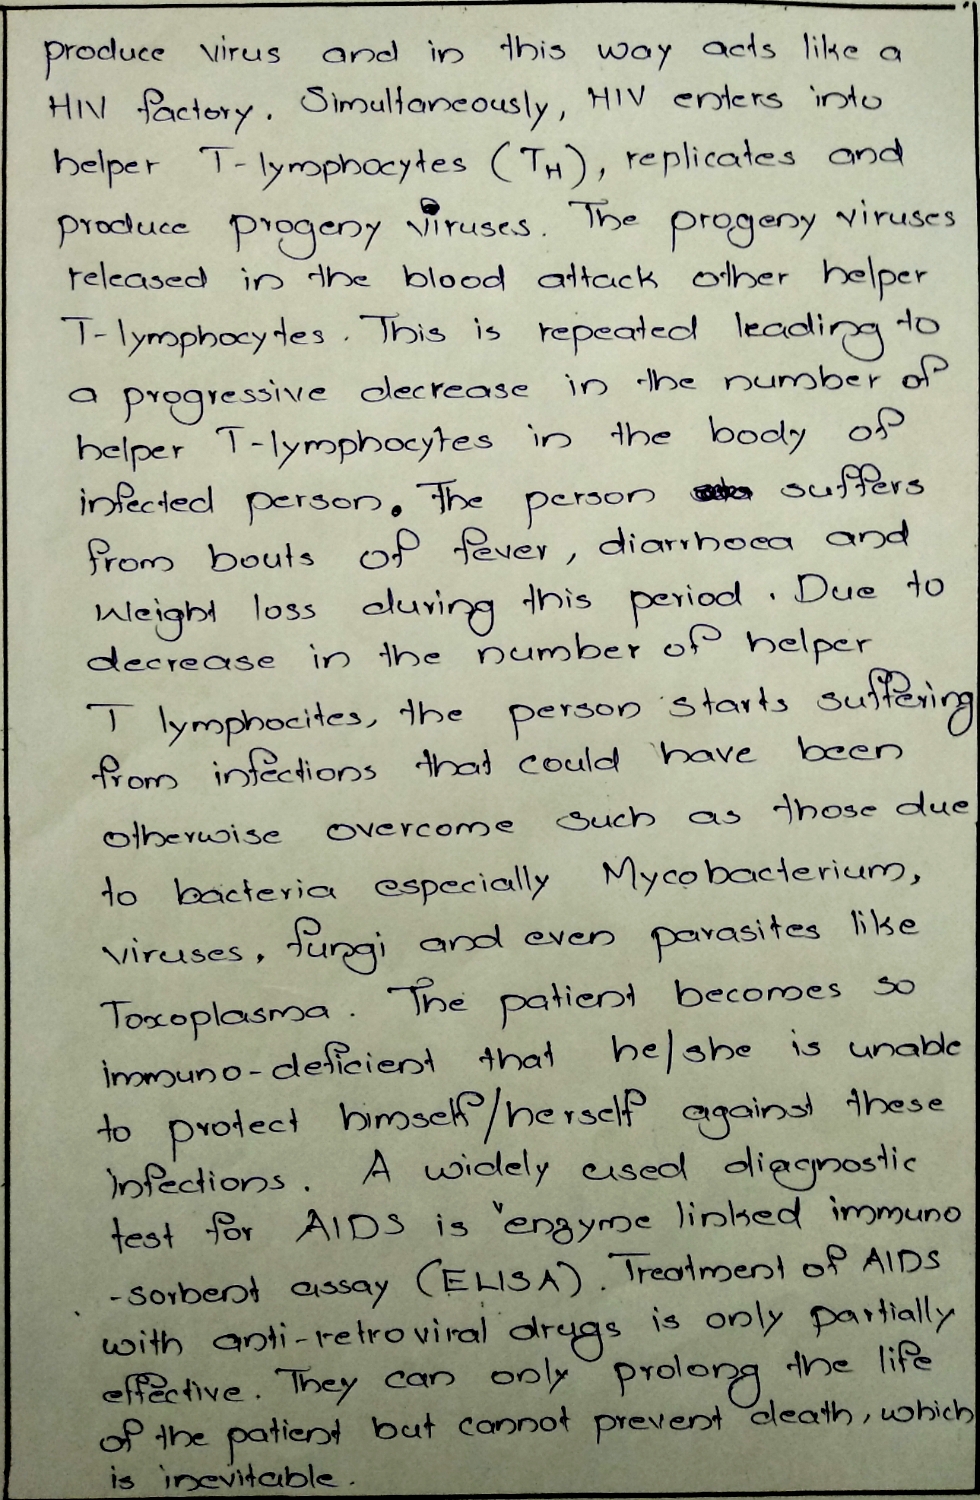 produce virus and in this way acts like a
HIV factory. Simultaneously, HIV enters into
helper T-lymphocytes (TH), replicates and
produce progeny viruses. The progeny viruses
released in the blood attack other helper
T-lymphocytes. This is repeated leading to
a progressive decrease in the number of
helper T-lymphocytes in the body of
infected person. The person suffers
from bouts of fever, diarrhoea and
weight loss during this period. Due to
decrease in the number of helper
T lymphocites, the person starts suffering
from infections that could have been
otherwise overcome such as those due
to bacteria especially Mycobacterium,
viruses, fungi and even parasites like
Toxoplasma. The patient becomes so
immuno-deficient that he/she is unable
to protect himself/herself against these
infections. A widely used diagnostic
test for AIDS is "enzyme linked immuno
-sorbent assay (ELISA). Treatment of AIDS
with anti-retroviral drugs is only partially
effective. They can only prolong the life
of the patient but cannot prevent death, which
is inevitable.